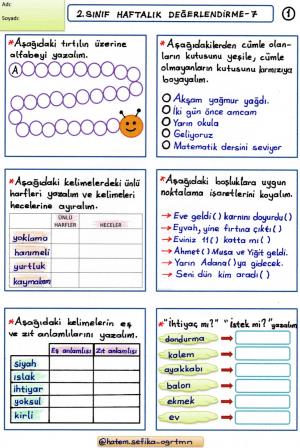 Ad:
Soyadı:
2.SINIF HAFTALIK DEĞERLENDİRME-7
1
*Aşağıdaki tırtılın üzerine
alfabeyi yazalım.
A
*Aşağıdakilerden cümle olan-
ların kutusunu yeşile, cümle
olmayanların kutusunu kırmızıya
boyayalım.
Akşam yağmur yağdı.
İki gün önce amcam
Yarın okula
Geliyoruz
Matematik dersini seviyor
*Aşağıdaki kelimelerdeki ünlü
harfleri yazalım ve kelimeleri
hecelerine ayıralım.
ÜNLÜ
HARFLER
HECELER
yoklama
hanımeli
yurtluk
kaymakam
*Aşağıdaki boşluklara uygun
noktalama işaretlerini koyalım.
→ Eve geldi ( ) karnını doyurdu ( )
→ Eyvah, yine fırtına çıktı ( )
→ Eviniz 11 ( ) katta mı ( )
→ Ahmet ( ) Musa ve Yiğit geldi.
→ Yarın Adana ( ) ya gidecek.
→ Seni dün kim aradı ( )
*Aşağıdaki kelimelerin eş
ve zıt anlamlılarını yazalım.
Eş anlamlısı
Zıt anlamlısı
siyah
ıslak
ihtiyar
yoksul
kirli
*"İhtiyaç mı?" "İstek mi?" yazalım
dondurma
kalem
ayakkabı
balon
ekmek
ev
@hatem.sefika_ogrtmn